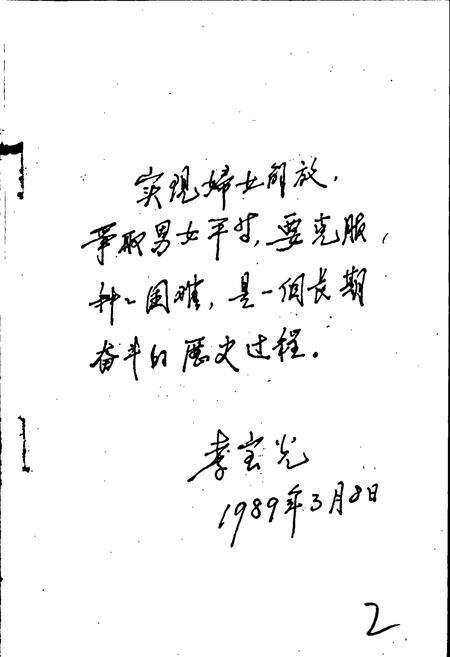 实现婦女解放,
争取男女平等,要克服,
种〻困难,是一個长期
奋斗的歷史过程。
李宝光
1989年3月8日
2